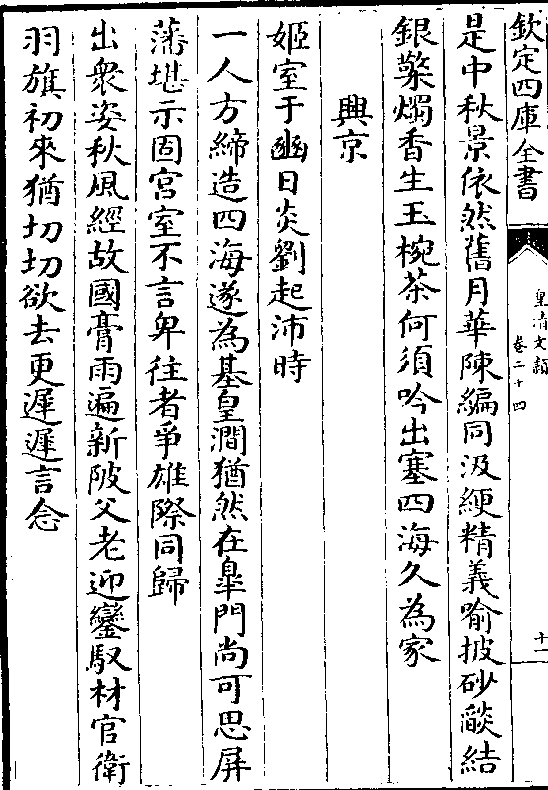 欽定四庫全書
皇清文穎
卷二十四
十一
是中秋景依然舊月華陳編同汲綆精義喻披砂燄結
銀檠燭香生玉椀茶何須吟出塞四海久為家
興京
姬室于豳日炎劉起沛時
一人方締造四海遂為基皇澗猶然在臯門尚可思屏
藩堪示固宮室不言卑往者爭雄際同歸
出衆姿秋風經故國膏雨遍新陂父老迎鑾馭材官衛
羽旗初來猶切切欲去更遲遲言念